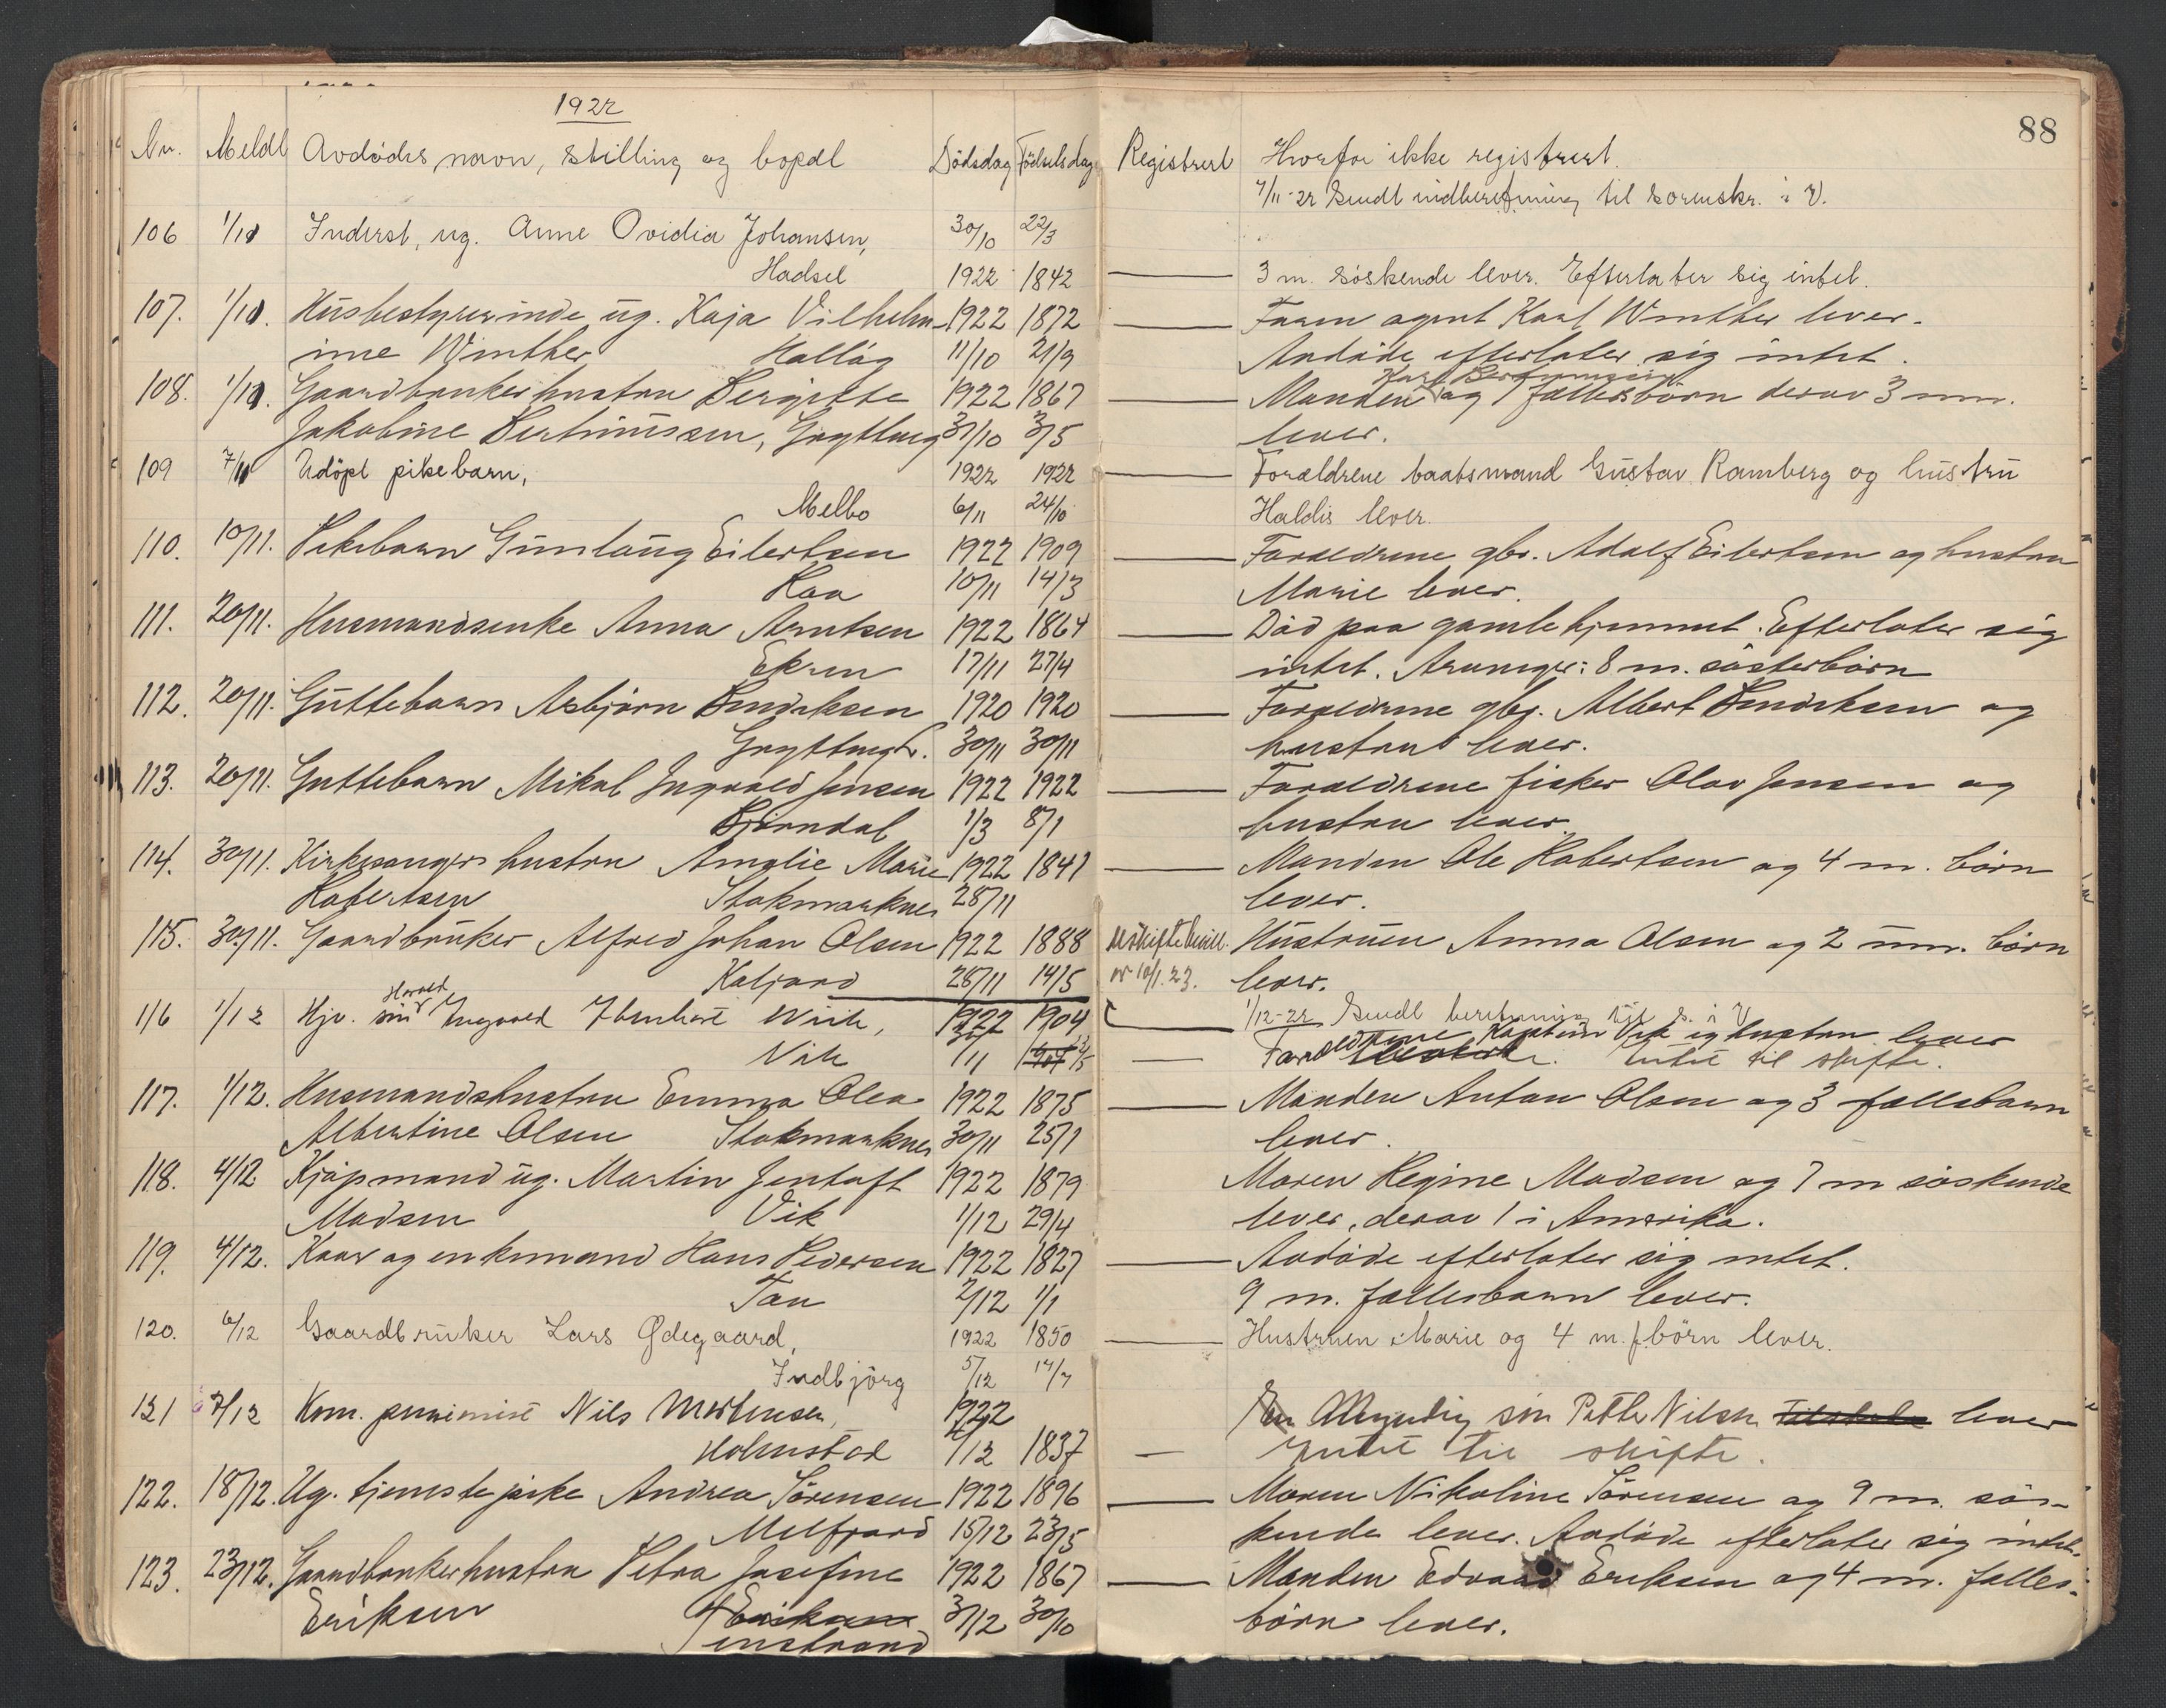 88
1922
Nr. Meldt Avdödes navn, stilling og bopæl Dödsdag Födselsdag Registrert Hvorfor ikke registrert.
7/11-22 Sendt indberetning til sorenskr. i V.
106 1/11 Inderst, ug. Anne Ovidia Johansen, 30/10 22/3
Hadsel 1922 1842 3 m. söskende lever. Efterlater sig intet.
107. 1/11. Husbestyrerinde ug. Kaja Vilhelm- 1922 1872 Faren agent Karl Winther lever.
ine Winther 11/10 21/9 Avdöde efterlater sig intet.
108. 1/11. Gaardbrukerhustru Bergitte 1922 1867 Manden og 7 fællesbörn derav 3 um.
Jakobine Bertinussen, Grytting 31/10 3/5 lever.
109 7/11 Udöpt pikebarn, 1922 1922 Forældrene baatsmand Gustav Ramberg og hustru
Melbo 6/11 24/10 Haldis lever.
110. 10/11. Pikebarn Gunlaug Eilertsen 1922 1909 Forældrene gbr. Adolf Eilertsen og hustru
10/11 14/3 Marie lever.
111. 20/11. Husmandsenke Anna Arntsen 1922 1864 Död paa gamlehjemmet. Efterlater sig
Ekren 17/11 27/4 intet. Arvinger: 8 m. sösterbörn
112. 20/11. Guttebarn Asbjörn Bendiksen 1920 1920 Forældrene gbr. Albert Bendiksen og
Grytting 30/11 30/11 hustru lever.
113. 20/11. Guttebarn Mikal Ingvald Jensen 1922 1922 Forældrene fisker Olav Jensen og
Björndal 1/3 8/1 hustru lever.
114. 30/11. Kirkesangers hustru Amalie Marie 1922 1841 Manden Ole Robertsen og 4 m. börn
Robertsen Stokmarknes 28/11 lever.
115. 30/11. Gaardbruker Alfred Johan Olsen 1922 1888 Hustruen Anna Olsen og 2 um. börn
Kaljord 28/11 14/5 10/1.23. lever.
1/12-22 Sendt beretning til S. i V
116 1/12 Hjv. sön Harald Ingvald Vik, 1922 1904 Forældrene Vik og hustru lever
Vik Intet til skifte.
117. 1/12. Husmandshustru Emma Olea 1922 1875 Manden Anton Olsen og 3 fællesbarn
Albertine Olsen Stokmarknes 30/11 25/1 lever.
118. 4/12 Kjöpmand ug. Martin Jentoft 1922 1879 Moren Regine Madsen og 7 m söskende
Madsen Vik 1/12 29/4 lever, derav 1 i Amerika.
119. 4/12. Kaar og enkemand Hans Pedersen 1922 1827 Avdöde efterlater sig intet.
2/12 1/1 9 m. fællesbarn lever.
120. 6/12 Gaardbruker Lars Ødegaard, 1922 1850 Hustruen Marie og 4 m. f.börn lever.
Indbjörg 5/12 17/7
121 7/12 Kom. Nils Mortensen, 1922 En Myndig sön Petter Nilsen lever
Holmstad 1837 Intet til skifte.
122. 18/12. Ug. tjenestepike Andrea Sörensen 1922 1896 Moren Nikoline Sörensen og 9 m. sös-
Melfjord 15/12 23/5 kende lever. Avdöde efterlater sig intet.
123. 23/12. Gaardbrukerhustru Petra Josefine 1922 1867 Manden Edvard Eriksen og 4 m. fælles-
Eriksen Eriksen 3/12 30/10 börn lever.